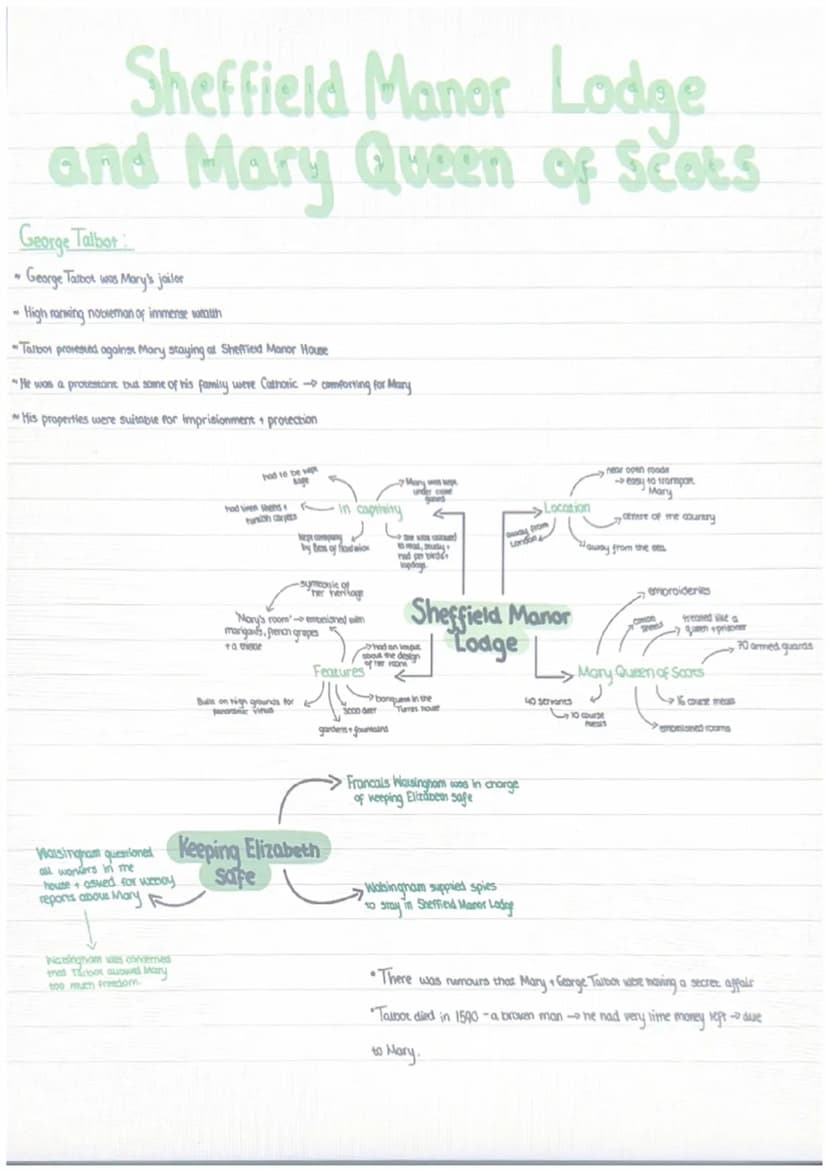 Sheffield Manor Lodge
and Mary Queen of Scots
George Talbot:
~ George Talbot was Mary's jailor
~ High ranking nobleman of immense wealth
~ Talbot protested against Mary staying at Sheffield Manor House
~ He was a protestant but some of his family were Catholic → comforting for Mary
~ His properties were suitable for imprisionment + protection
had to be kept
safe
Mary was kept
under close
guard
had linen sheets +
turkish carpets
In captivity
Kept company
by Bess of Hardwick
she was allowed
to read, study +
had pet birds +
lapdogs.
near open roads
→ easy to transport
Mary
Location
centre of the country
away from
London
away from the sea.
Sheffield Manor
Lodge
symbolic of
her heritage
'Mary's room' → emblazined with
marigolds, french grapes
+ a thistle
had an input
about the design
of her room
Features
Built on high grounds for
panoramic views
banquets in the
Turret house
gardens + fountains
embroideries
treated like a
queen + prisoner
70 armed guards
Mary Queen of Scots
40 servants
→ 10 course
meals
16 course meals
emblazined rooms
Francais Walsingham was in charge
of keeping Elizabeth safe
Keeping Elizabeth
safe
Walsingham questioned
all workers in the
house + asked for weekly
reports about Mary
Walsingham supplied spies
to stay in Sheffield Manor Lodge
Walsingham was concerned
that Talbot allowed Mary
too much freedom.
* There was rumours that Mary + George Talbot were having a secret affair
* Talbot died in 1590 - a broken man → he had very little money left → due
to Mary.